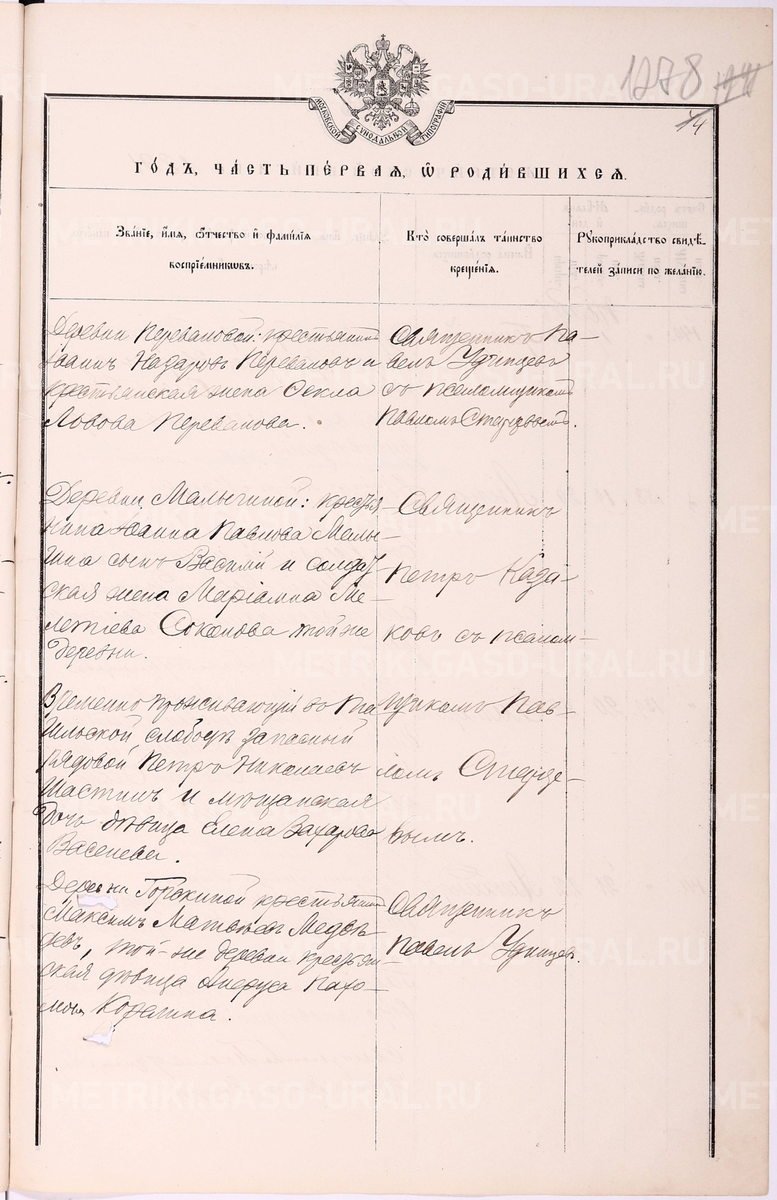 1278
14
МОСКОВСКОЙ СѴНОДАЛЬНОЙ ТИПОГРАФІИ
ГО́ДЪ, ЧА́СТЬ ПЕ́РВАЯ, Ѿ РОДИ́ВШИХСЯ.
Зва́ніе, и́мя, ѻ҆́тчество и҆ фами́лія
воспріе́мникѡвъ.
Кто̀ соверша́лъ та́инство
креще́нія.
Рꙋкоприкла́дство свидѣ́-
телей за́писи по жела́нію.
Деревни Переваловой: крестьянинъ
Іоаннъ Назаровъ Переваловъ и
крестьянская жена Фекла
Перевалова.
Священникъ Па-
велъ Удинцевъ
съ псаломщикомъ
Павломъ
Деревни Малыгиной: крестья-
нина Іоанна Павлова Малы-
гина сынъ Василій и солдат-
ская жена Маріамна Ме-
летіева Соколова той же
деревни.
Священникъ
Петръ Каза-
ковъ съ псалом-
Временно проживающій въ
слободѣ запасный
рядовой Петръ Николаевъ
Шастинъ и мѣщанская
дочь дѣвица Елена Захарова
Васенева.
щикомъ Пав-
ломъ
Деревни крестьянинъ
Максимъ Матвѣевъ Медвѣ-
девъ, той-же деревни крестьян-
ская дѣвица Пахо-
мова
Священникъ
Павелъ Удинцевъ.
METRIKI.GASO-URAL.RU